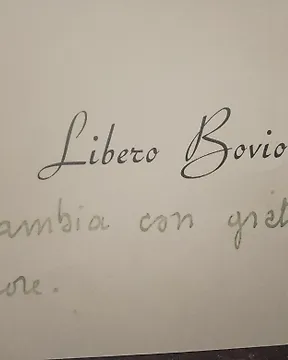 Libero Bovio
ambia con grat
ore.